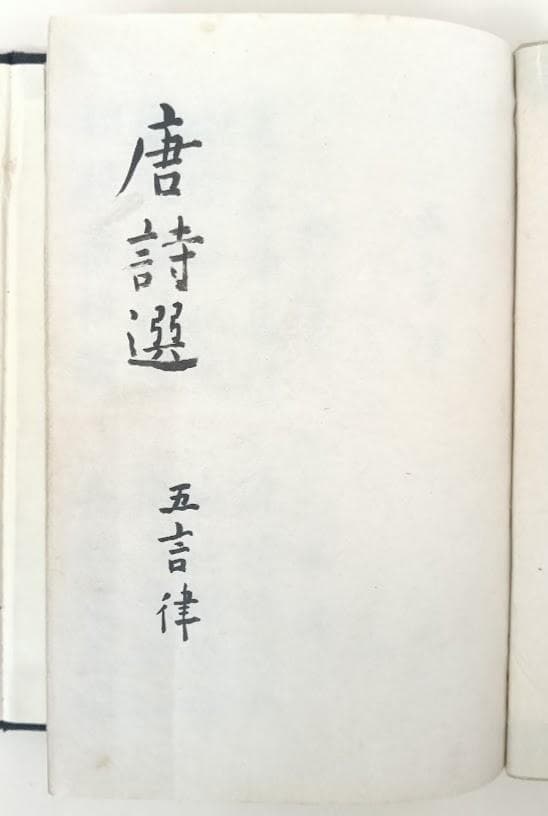 唐詩選
五言律